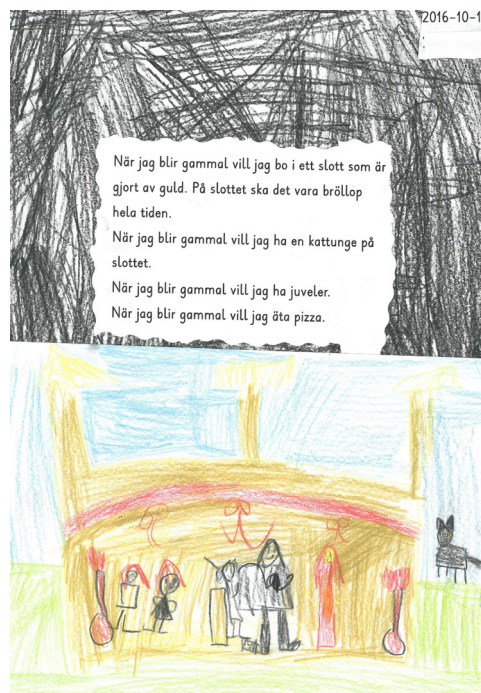 2016-10-1
När jag blir gammal vill jag bo i ett slott som är
gjort av guld. På slottet ska det vara bröllop
hela tiden.
När jag blir gammal vill jag ha en kattunge på
slottet.
När jag blir gammal vill jag ha juveler.
När jag blir gammal vill jag äta pizza.